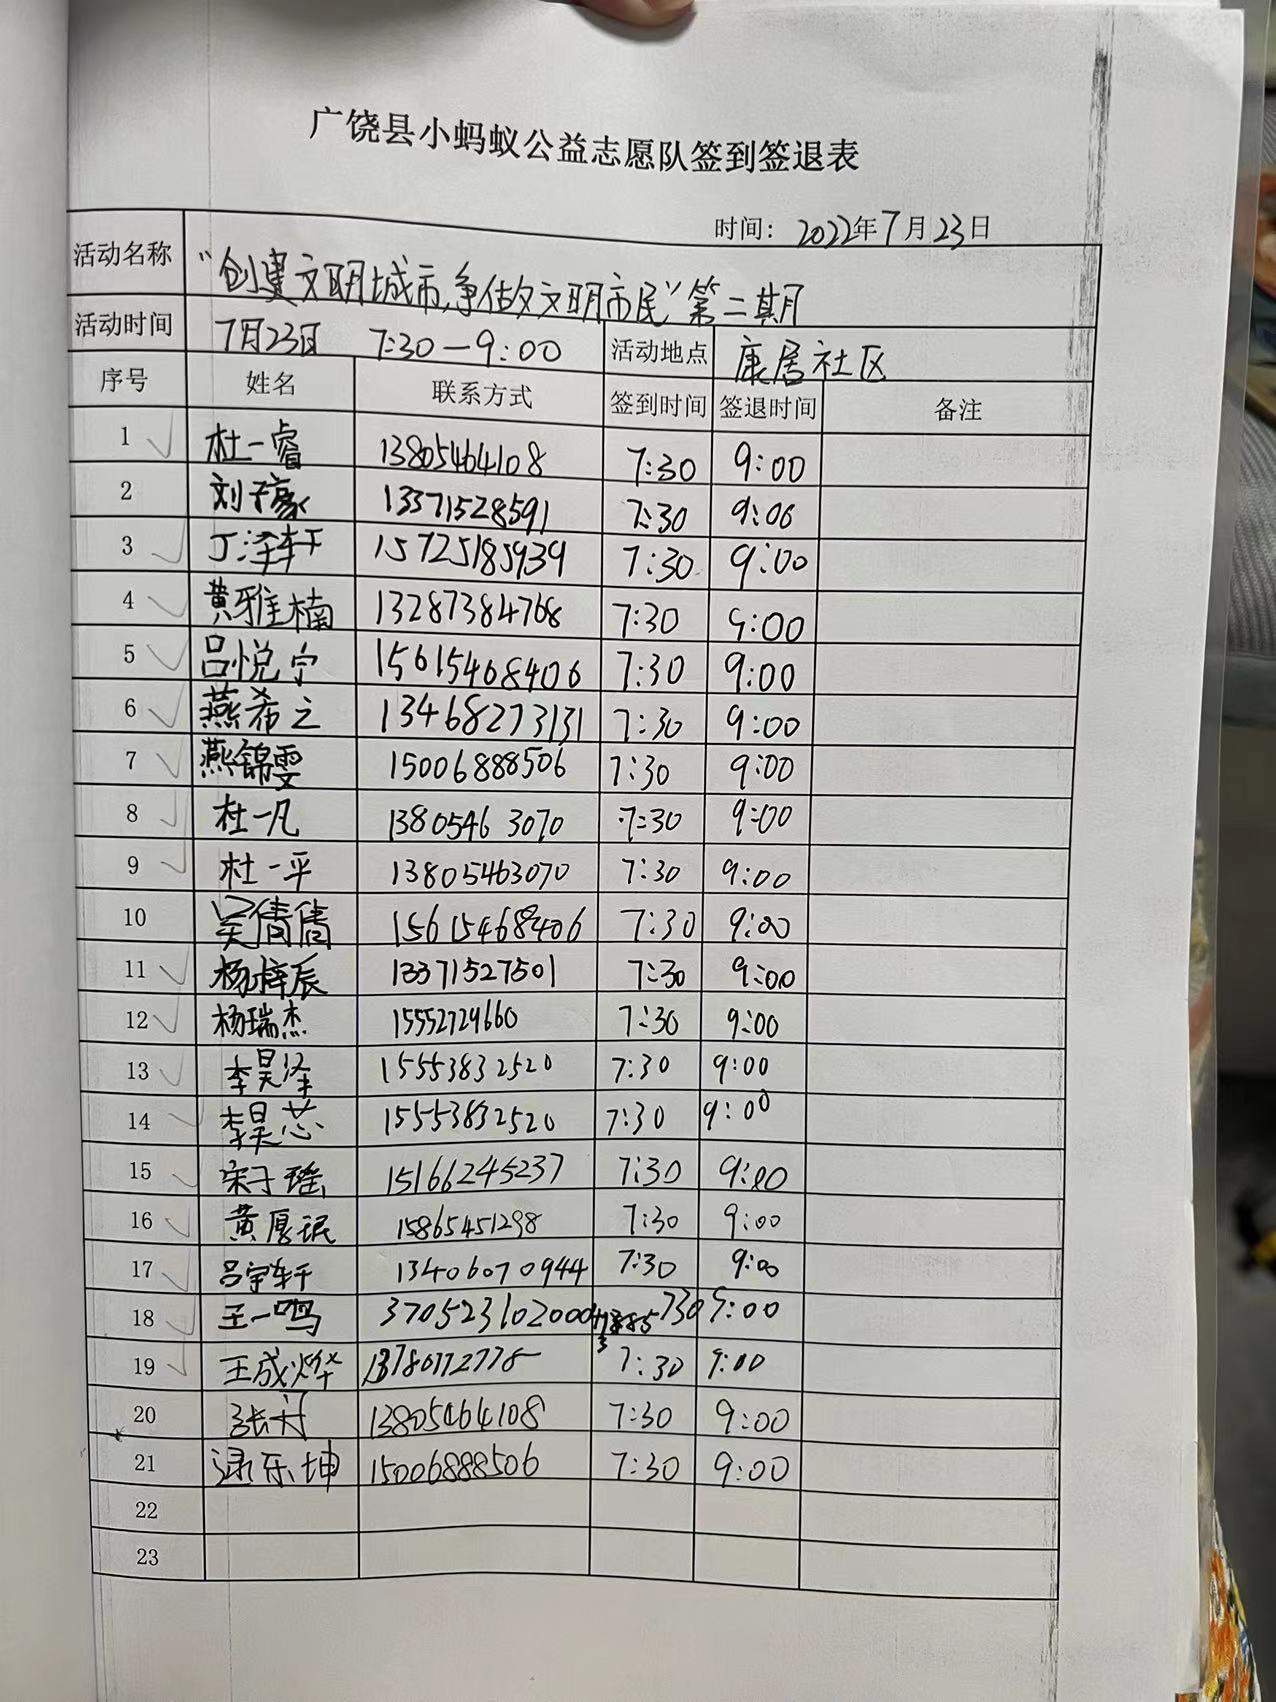 广饶县小蚂蚁公益志愿队签到签退表
时间：2022年7月23日
活动名称 "创建文明城市,争做文明市民"第二期
活动时间 7月23日 7:30—9:00 活动地点 康居社区
序号 姓名 联系方式 签到时间 签退时间 备注
1 杜一睿 13805464108 7:30 9:00
2 刘子豪 13371528591 7:30 9:00
3 丁泽轩 15725185939 7:30 9:00
4 黄雅楠 13287384768 7:30 9:00
5 吕悦宁 15615468406 7:30 9:00
6 燕希之 13468273131 7:30 9:00
7 燕锦雯 15006888506 7:30 9:00
8 杜一凡 13805463070 7:30 9:00
9 杜一平 13805463070 7:30 9:00
10 吴倩倩 15615468406 7:30 9:00
11 杨梓辰 13371527501 7:30 9:00
12 杨瑞杰 15552729660 7:30 9:00
13 李昊泽 15553832520 7:30 9:00
14 李昊芯 15553832520 7:30 9:00
15 宋子瑶 15166245237 7:30 9:00
16 黄厚珉 15865451298 7:30 9:00
17 吕宇轩 13406070944 7:30 9:00
18 王一鸣 730 9:00
19 王成烨 13780772778 7:30 9:00
20 13805464108 7:30 9:00
21 逯乐坤 15006888506 7:30 9:00
22
23